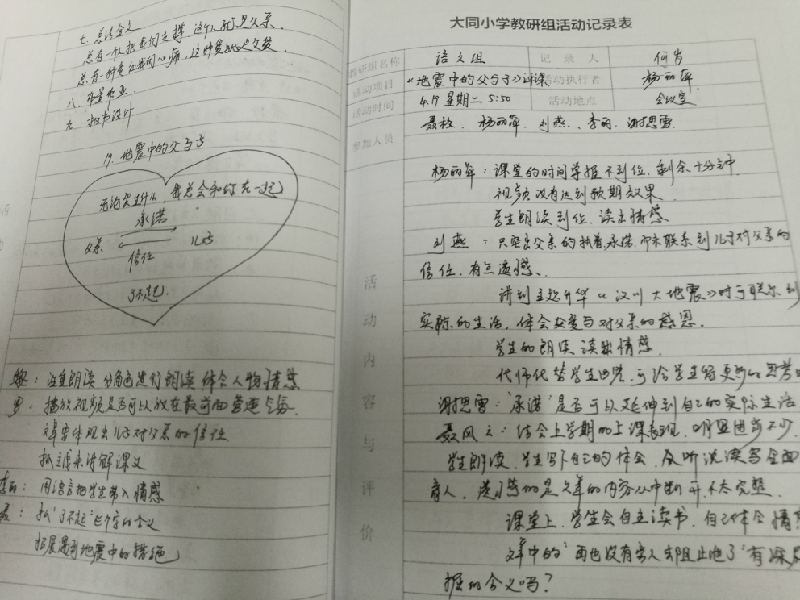 七、总结全文
八、布置作业
九、板书设计
17、地震中的父与子
无论发生什么 我总会和你在一起
承诺
父亲 儿子
信任
了不起
注重朗读 分角色进行朗读 体会人物情感
播放视频是否可以放在最前面营造气氛
文章体现出儿子对父亲的信任
抓主线来讲解课文
用语言把学生带入情感
抓"了不起"这个字的含义
拓展是有地震中的措施
大同小学教研组活动记录表
教研组名称 语文组 记录人
活动项目 《地震中的父与子》评课 活动执行者 杨丽萍
活动时间 4.19 星期二 5:50 活动地点 会议室
参加人员 杨丽萍、刘燕、李丽、谢思雪
活动内容与评价
杨丽萍：课堂的时间掌握不到位，剩余十分钟
视频没有达到预期效果
学生朗读到位，读出情感
刘燕：只突出父亲的执着、承诺，而未联系到儿子对父亲的
信任，有点遗憾、
讲到主题升华《汶川大地震》时可联系到
实际的生活，体会父爱与对父亲的感恩。
学生的朗读 读出情感
代师代替学生回答，可给学生留更多的思考
谢思雪："承诺"是否可以延伸到自己的实际生活
结合上学期的上课表现，明显进步不少
学生朗读、学生写下自己的体会，及听说读写全面
育人，遗憾的是文章的内容从中断开，不太完整。
课堂上，学生会自主读书，自己体会情
文章中的"再也没有人去阻止他了"有深层
的含义吗？